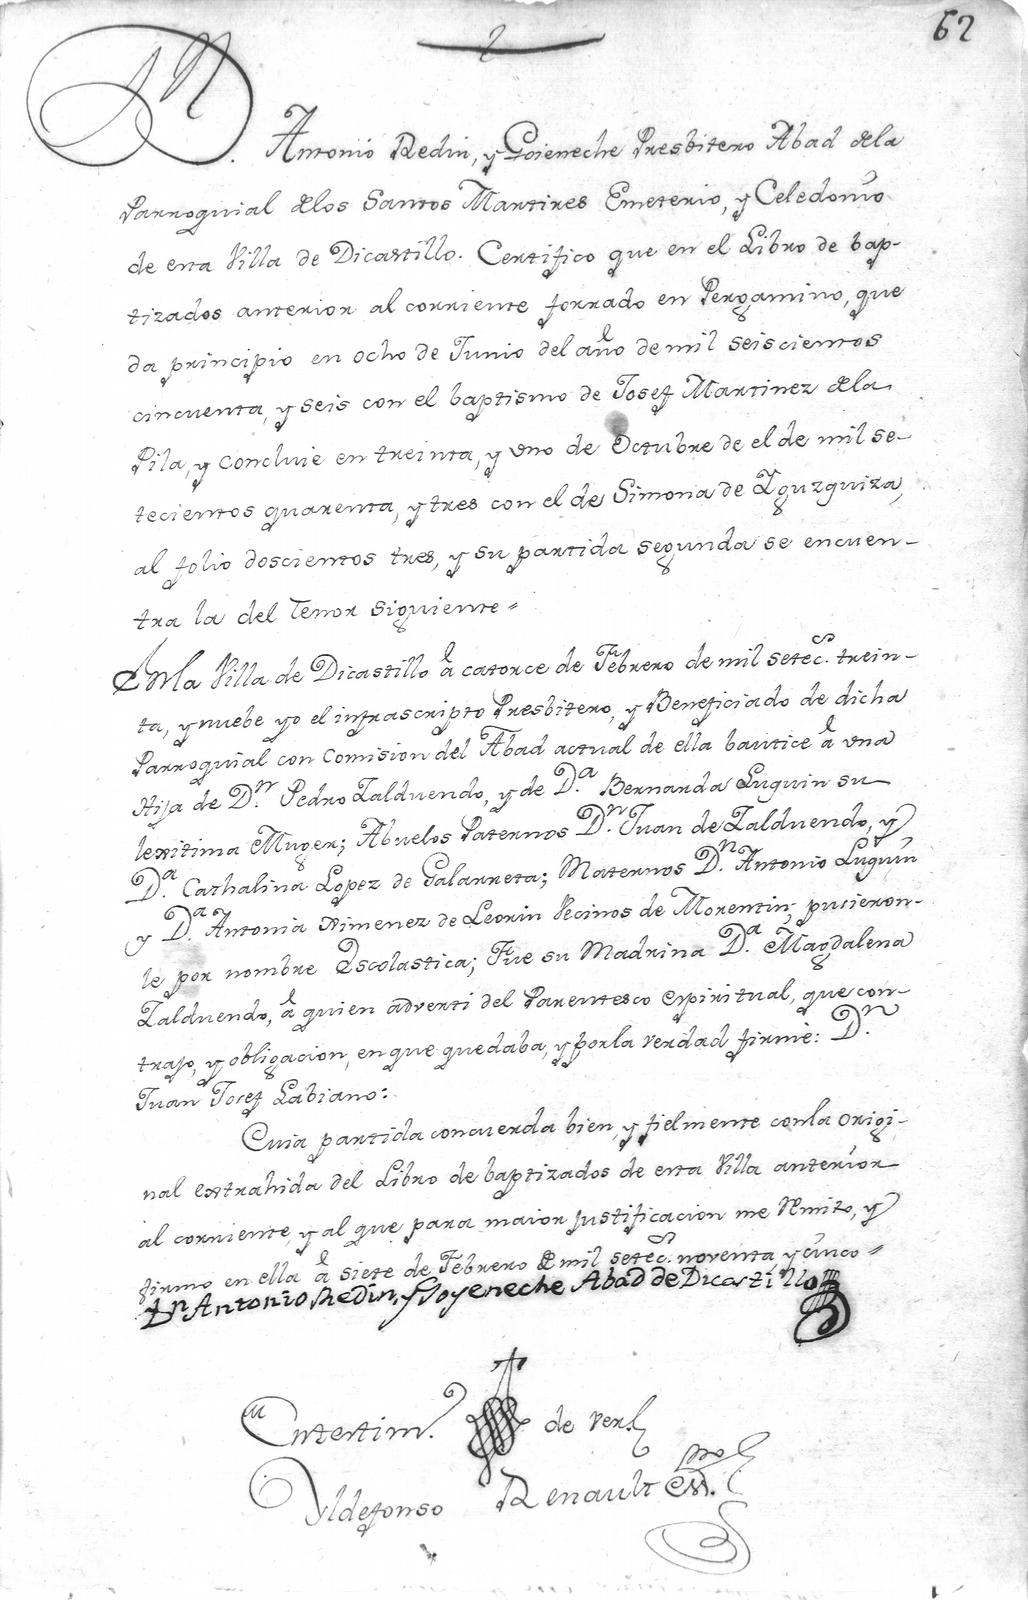 62
Dn. Antonio Redin, y Goieneche Presbitero Abad dela
Parroquial delos Santos Martires Emeterio, y Celedonio
de esta Villa de Dicastillo. Certifico que en el Libro de bap-
tizados anterior al corriente forrado en Pergamino, que
da principio en ocho de Junio del año de mil seiscientos
cincuenta, y seis con el baptismo de Josef Martinez dela
Pila, y concluie en treinta, y uno de Octubre de el de mil se-
tecientos quarenta, y tres con el de Simona de Yguzquiza,
al folio doscientos tres, y su partida segunda se encuen-
tra la del tenor siguiente =
En la Villa de Dicastillo à catorce de Febrero de mil setecs. trein-
ta, y nuebe yo el infrascripto Presbitero, y Beneficiado de dicha
Parroquial con Comision del Abad actual de ella bautice à una
Hija de Dn. Pedro Zalduendo, y de Da. Bernanda Luquin su
lexitima Muger; Abuelos Paternos Dn. Juan de Zalduendo, y
Da. Cathalina Lopez de Galarreta; Maternos Dn. Antonio Luquin
y Da. Antonia Ximenez de Leorin Vecinos de Morentin; pusieron-
le por nombre Escolastica; Fue su Madrina Da. Magdalena
Zalduendo, à quien adverti del Parentesco espiritual, que con-
trajo, y obligacion, en que quedaba, y por la verdad firmè: Dn.
Juan Josef Labiano:
Cuia partida concuerda bien, y fielmente con la origi-
nal extrahida del Libro de baptizados de esta Villa anterior
al corriente, y al que para maior justificacion me remito, y
firmo en ella à siete de Febrero de mil setecs. noventa y cinco =
Dn Antonio Redin, y Goyeneche Abad de Dicastillo
En testim.o de verd
Yldefonso Renault